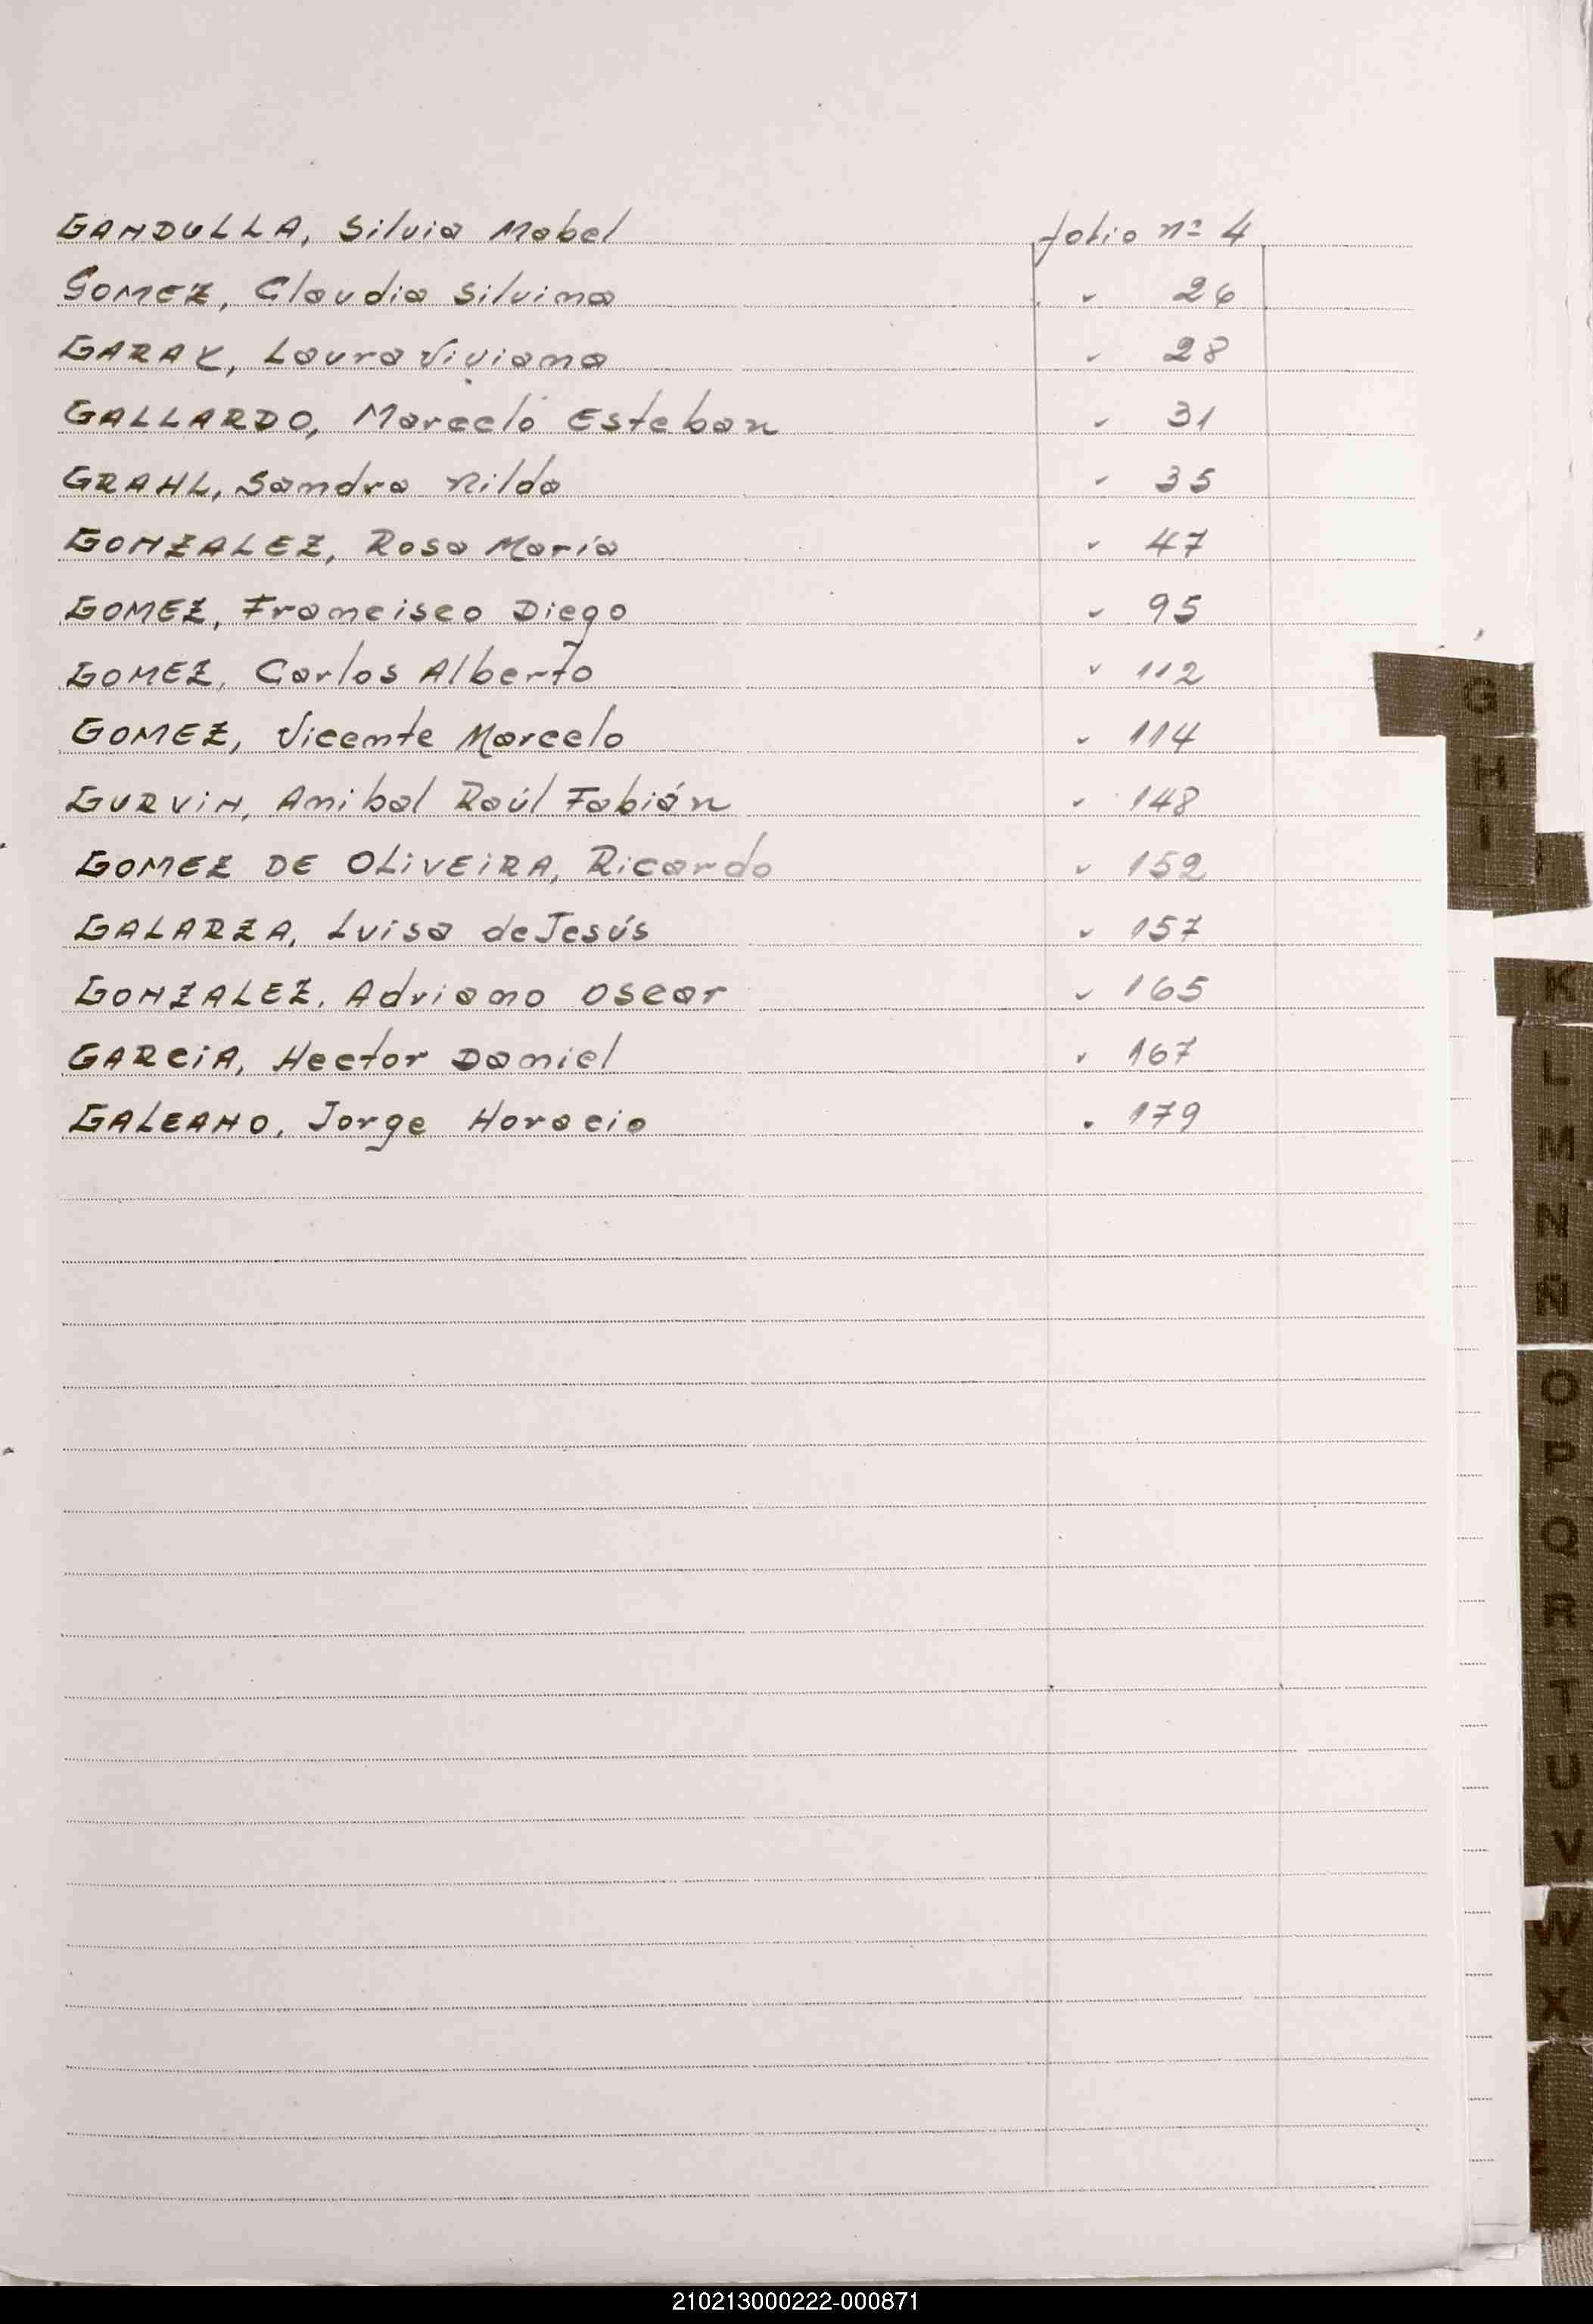 GANDULLA, Silvia Mabel folio nº 4
GOMEZ, Claudia Silvina " 26
GARAY, Laura Viviana " 28
GALLARDO, Marcelo Esteban " 31
GRAHL, Sandra Nilda " 35
GONZALEZ, Rosa María " 47
GOMEZ, Francisco Diego " 95
GOMEZ, Carlos Alberto " 112
GOMEZ, Vicente Marcelo " 114
GURVIN, Anibal Raúl Fabián " 148
GOMEZ DE OLiVEiRA, Ricardo " 152
GALARZA, Luisa de Jesús " 157
GONZALEZ, Adriano Oscar " 165
GARCiA, Hector Daniel " 167
GALEANO, Jorge Horacio " 179
G
H
I
J
K
L
M
N
Ñ
O
P
Q
R
T
U
V
W
X
210213000222-000871